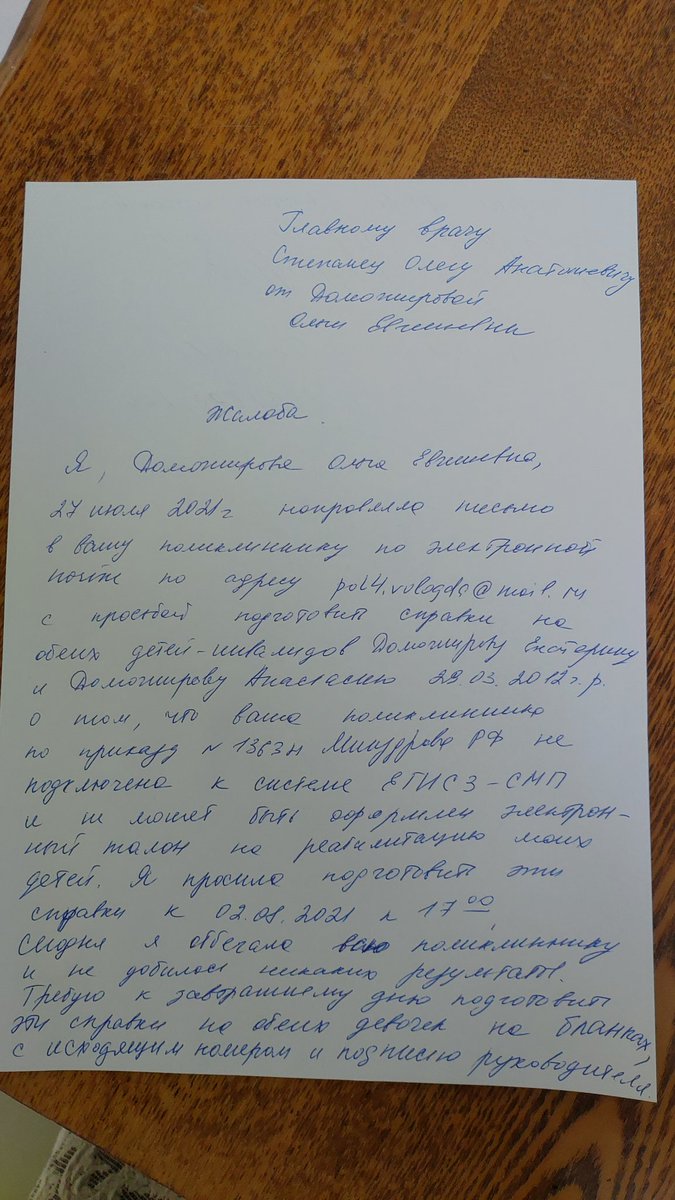 Главному врачу
Степанец Олегу Анатольевичу
от Доможировой
Ольги Евгеньевны
Жалоба.
Я, Доможирова Ольга Евгеньевна,
27 июля 2021г направляла письмо
в вашу поликлиннику по электронной
почте по адресу pol4.vologda@mail.ru
с просьбой подготовить справки на
обеих детей-инвалидов Доможирову Екатерину
и Доможирову Анастасию 29.03.2012г.р.
о том, что ваша поликлинника
по приказу №1363н Минздрава РФ не
подключена к системе ЕГИСЗ-СМП
и не может быть оформлен электрон-
ный талон на реабилитацию моих
детей. Я просила подготовить эти
справки к 02.08.2021 к 17 00
Сегодня я оббегала всю поликлиннику
и не добилась никаких результатов.
Требую к завтрашнему дню подготовить
эти справки на обеих девочек на бланках,
с исходящим номером и подписью руководителя.